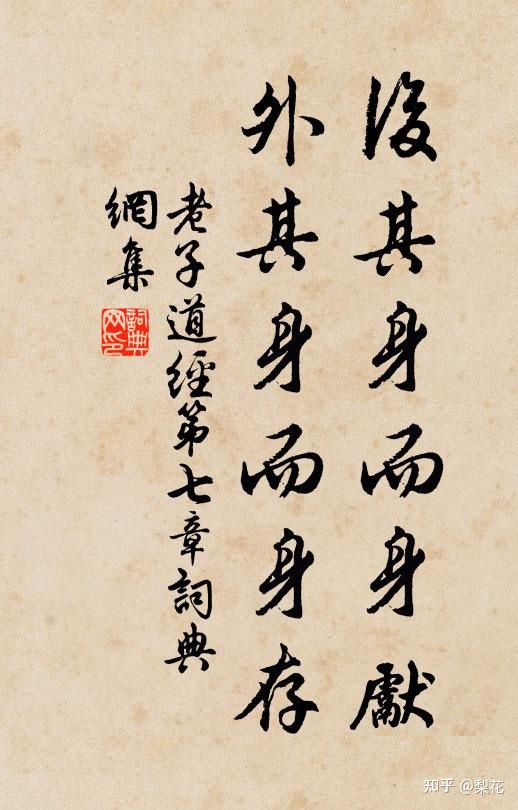 後其身而身獻
外其身而身存
老子道經第七章詞典
網集
詞典
网印
知乎 @梨花